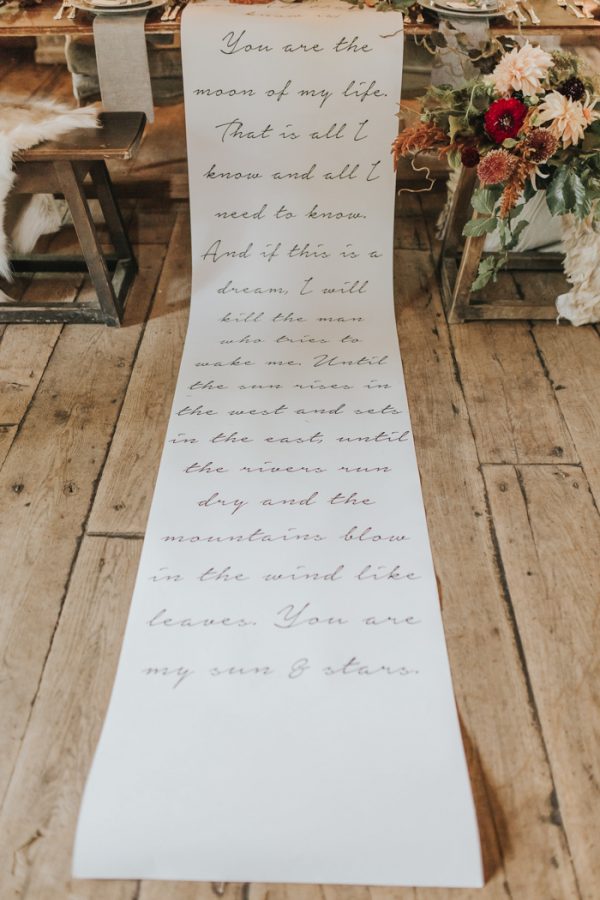 know is
You are the
moon of my life.
That is all I
know and all I
need to know.
And if this is a
dream, I will
kill the man
who tries to
wake me. Until
the sun rises in
the west and sets
in the east, until
the rivers run
dry and the
mountains blow
in the wind like
leaves. You are
my sun & stars.